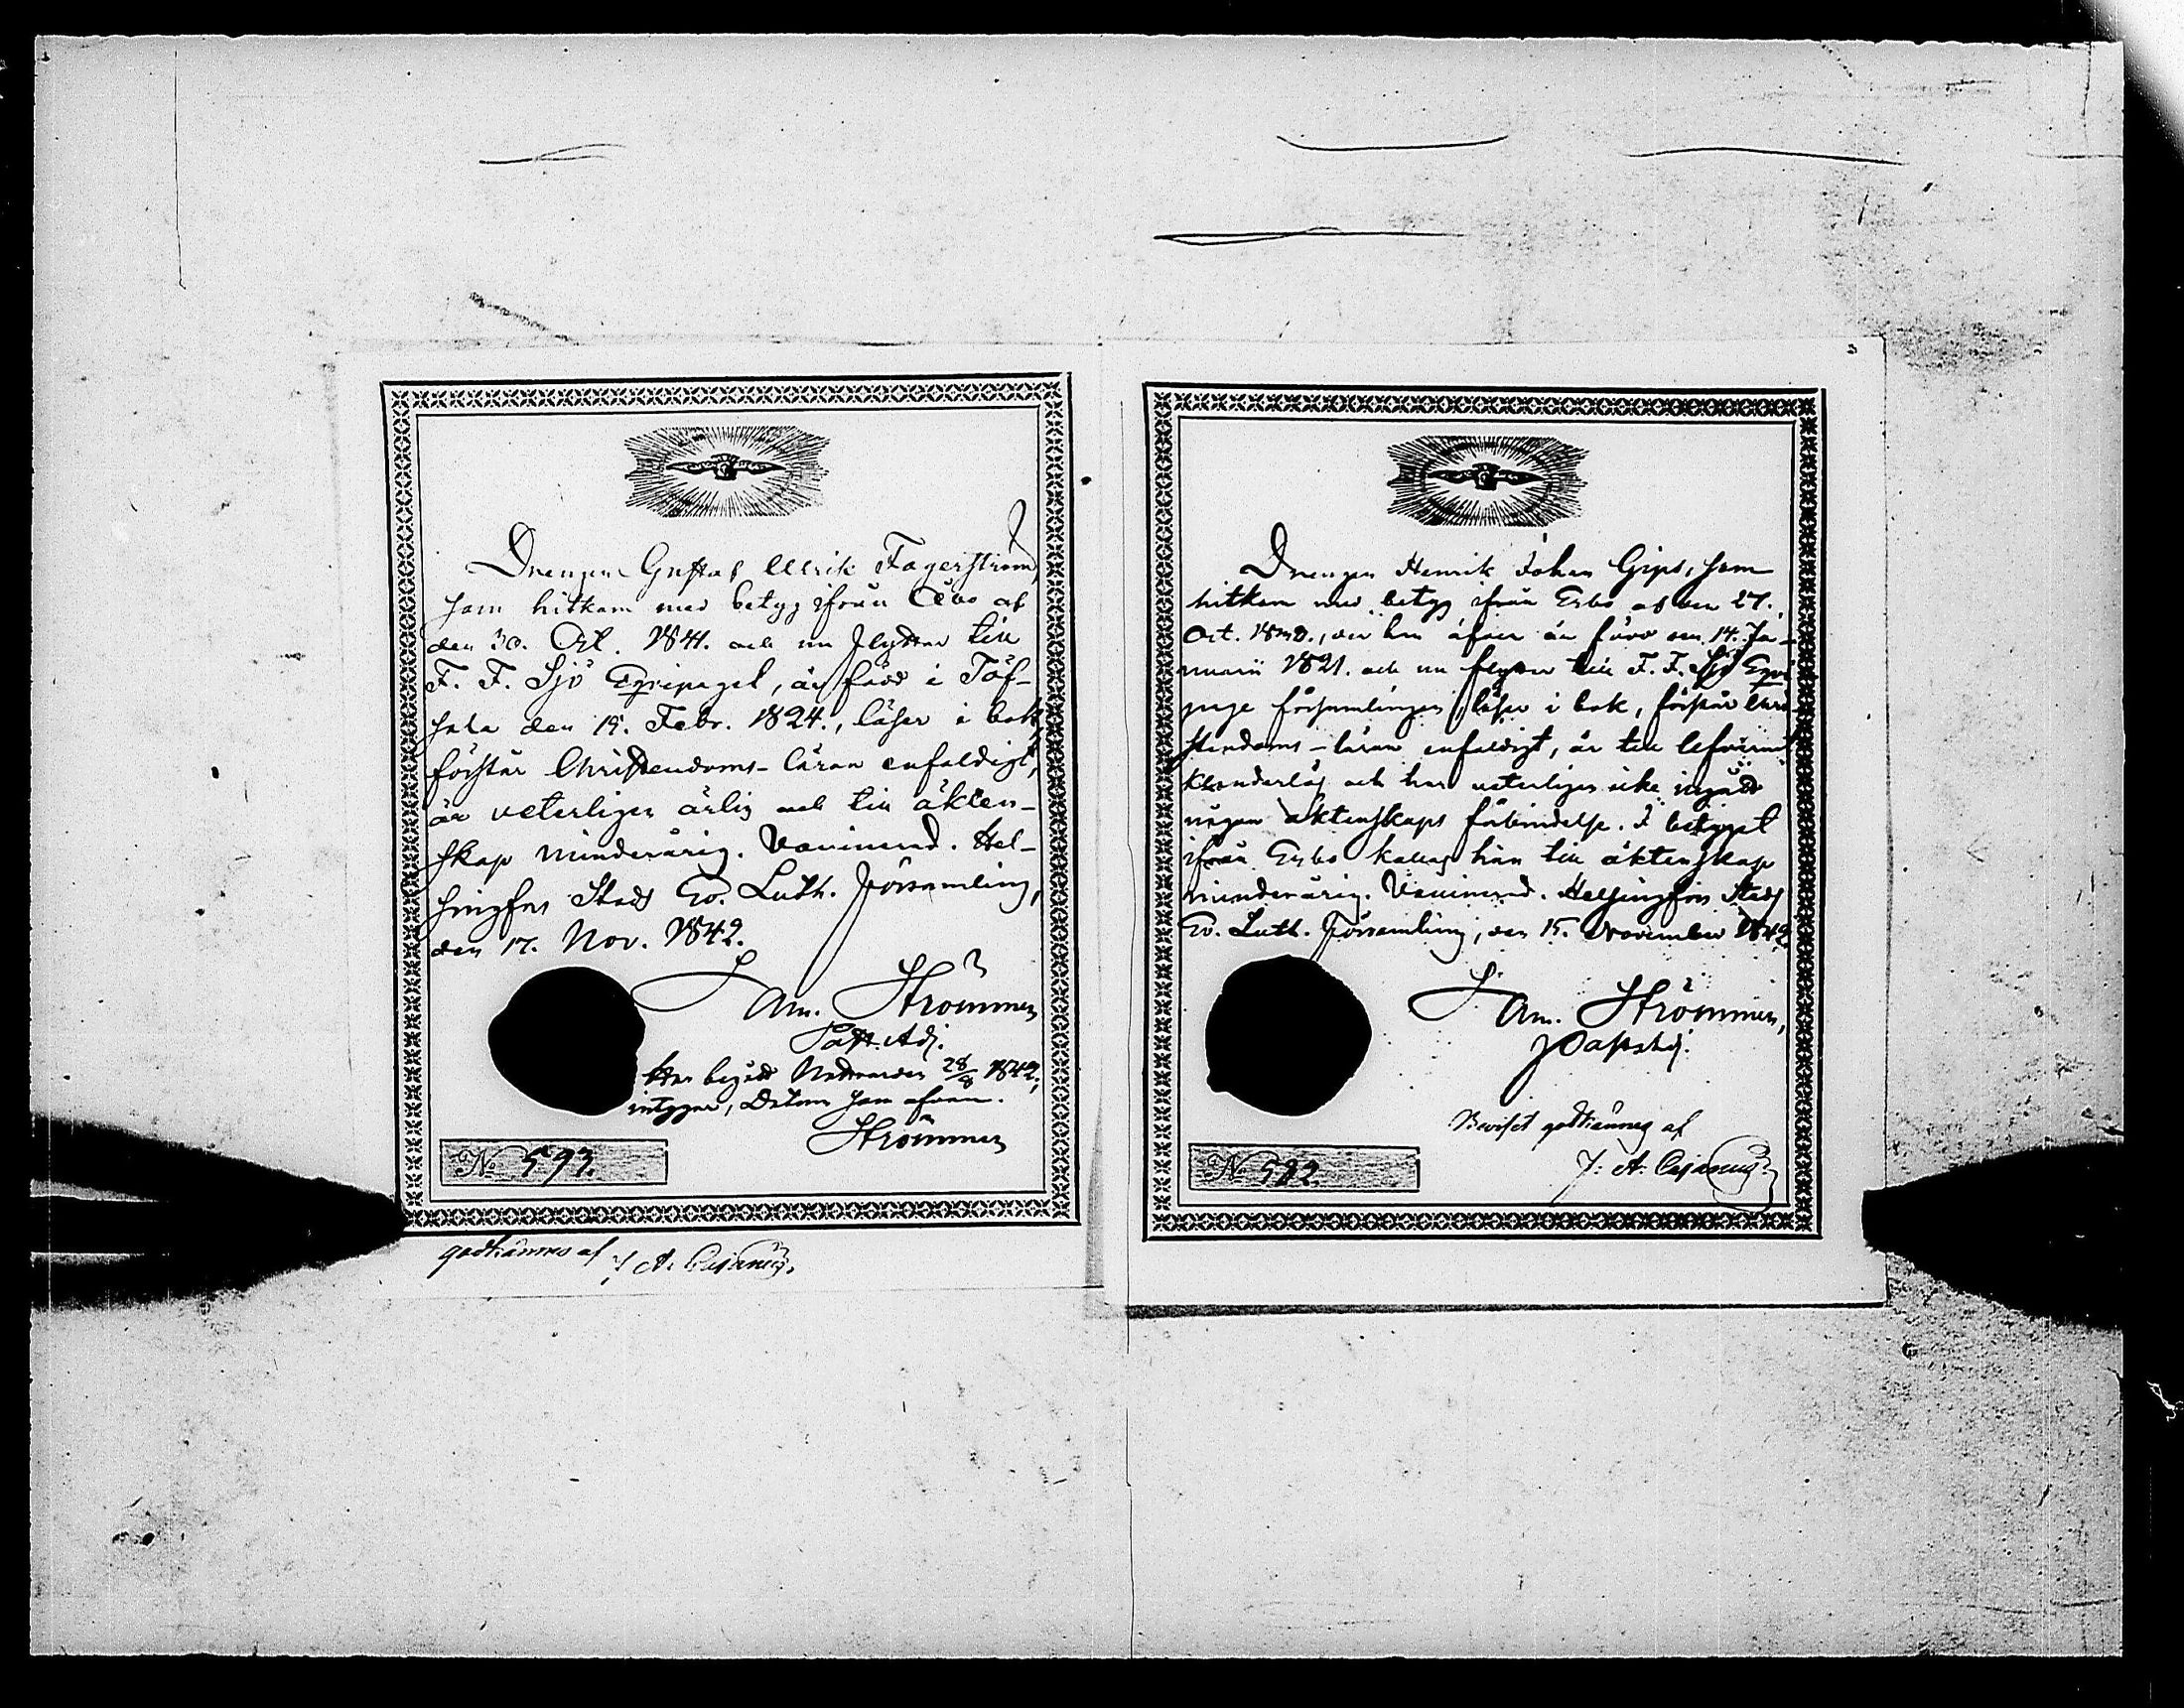 Drengen Gustaf Ulrik Fagerström,
som hitkom med betyg ifrån Åbo af
den 30. Oct. 1841. och nu flyttar till
F. F. Sjö Eqvipaget, är född i Töf-
sala den 15. Febr. 1824., läser i bok,
förstår Christendoms-läran enfaldigt,
är veterligen ärlig och till äkten-
skap minderårig. Vaccinerad. Hel-
singfors Stads Ev. Luth. Församling,
den 17. Nov. 1842.
Am. Strömmer
Past. Adj.
Har begått Nattvarden 28/8 1842.,
intygar, Datum som ofvan.
Strömmer
No 593.
godkännes af J. A. Cajanus.
3
Drengen Henrik Johan Gips, som
hitkom med betyg ifrån Esbo af den 27.
Oct. der han äfven är född den 14. Ja-
nuarii 1821. och nu flyttar till F. F. Sjö Eqvi-
page församlingen, läser i bok, förstår Chri-
stendoms-läran enfaldigt, är till lefvernet
klanderlös och har veterligen icke ingått
någon äktenskaps förbindelse. I betyget
ifrån Esbo kallas han till äktenskap
minderårig. Vaccinerad. Helsingfors Stads
Ev. Luth. Församling, den 15. November 1842.
Am. Strömmer,
Past. Adj.
Beviset godkännes af
J. A. Cajanus
No 582.